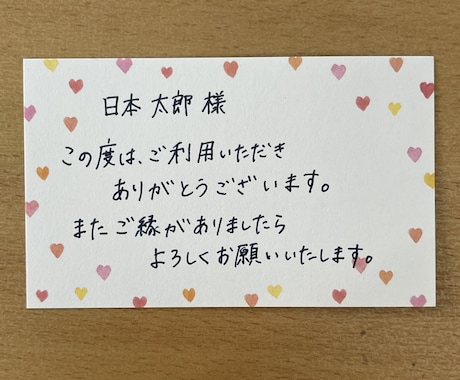 日本 太郎 様
この度は、ご利用いただき
ありがとうございます。
またご縁がありましたら
よろしくお願いいたします。